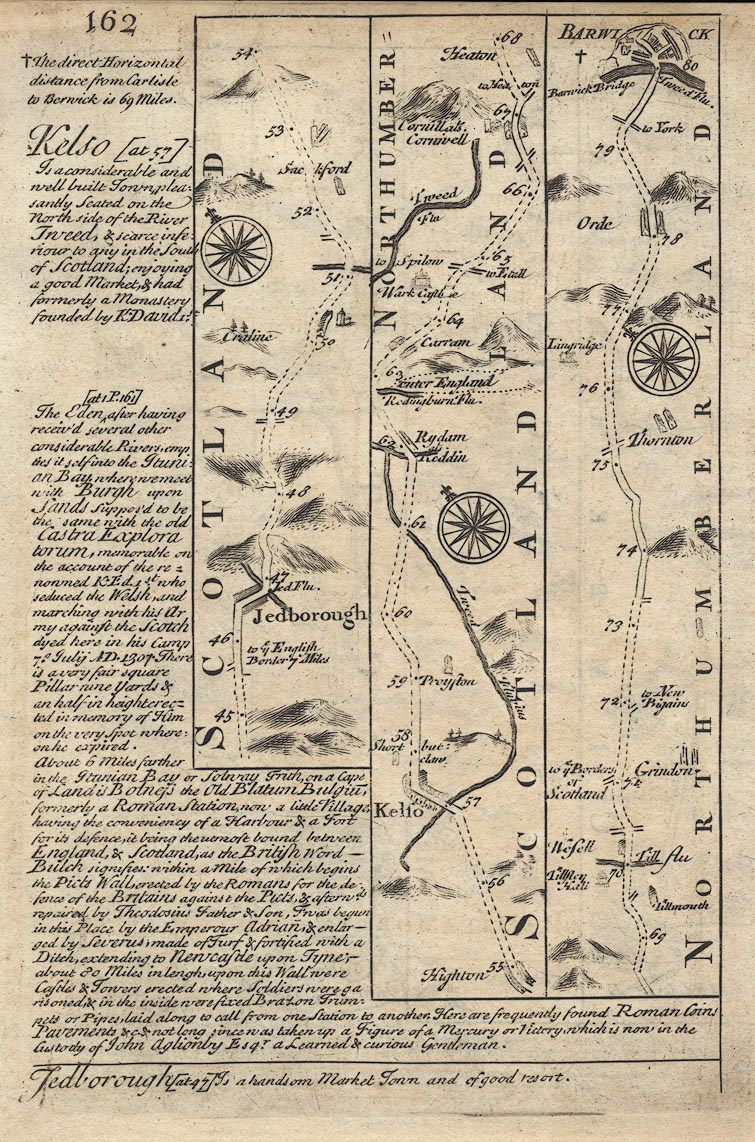 162
†The direct Horizontal
distance from Carlisle
to Berwick is 69 Miles.
Kelso [at 57]
Is a considerable and
well built Town, plea-
santly Seated on the
North side of the River
Tweed, & scarce infe-
riour to any in the South
of Scotland; enjoying
a good Market, & had
formerly a Monastery
founded by K. David 1st.
[at 1 P. 161]
The Eden, after having
receiv'd several other
considerable Rivers, emp
ties it self into the Ituni-
an Bay, where we meet
with Burgh upon
Sands suppos'd to be
the same with the old
Castra Explora
torum, memorable on
the account of the re=
nowned K. Ed. 1st who
seduced the Welsh, and
marching with his Ar
my against the Scotch
dyed here in his Camp
7º July AD. 1307. There
is a very fair square
Pillar nine Yards &
an half in height erec=
ted in memory of Him
on the very Spot where=
on he expired.
About 6 Miles farther
in the Itunian Bay or Solway Frith, on a Cape
of Land is Bolness the Old Blatum Bulgiu,
formerly a Roman Station, now a little Village,
having the conveniency of a Harbour & a Fort
for its defence, it being the utmost bound between
England, & Scotland, as the British Word —
Bulch signifies: within a Mile of which begins
the Picts Wall, erected by the Romans for the de-
fence of the Britains against the Picts, & afterwds
repaired by Theodosius Father & Son, Twas begun
in this Place by the Emperour Adrian, & enlar-
ged by Severus, made of Turf & fortified with a
Ditch, extending to Newcastle upon Tyne,
about 80 Miles in lengh, upon this Wall were
Castles & Towers erected where Soldiers were ga
risoned, & in the inside were fixed Brazon Trum-
pets or Pipes, laid along to call from one Station to another. Here are frequently found Roman Coins
Pavements &c & not long since was taken up a Figure of a Mercury or Victory, which is now in the
Custody of John Aglionby Esqr. a Learned & curious Gentleman.
Jedborough [at 47] Is a handsom Market Town and of good resort.
SCOTLAND
54
53
Sackford
52
51
50
Craline
49
48
47
Jed Flu.
Jedborough
46
to ye English
Border 7 Miles
45
NORTHUMBERLAND
68
Heaton
to Heaton
67
Cornillals
Cornwell
66
Tweed
Flu
65
to Spilow
to Etall
Wark Castle
64
Carram
63
enter England
Redingburn Flu.
62
Rydam
Reddin
61
SCOTLAND
Tweed
60
59
Proyston
58
Short but:
claw.
57
Kelso
56
Highton
55
BARWICK
†
80
Barwick Bridge
Tweed Flu.
to York
79
Orde
78
77
Lingridge
76
Thornton
75
74
73
NORTHUMBERLAND
72
to New
Bigains
71
to ye Borders
of
Scotland
Grindon
Wesell
Till flu
70
Tillmouth
69